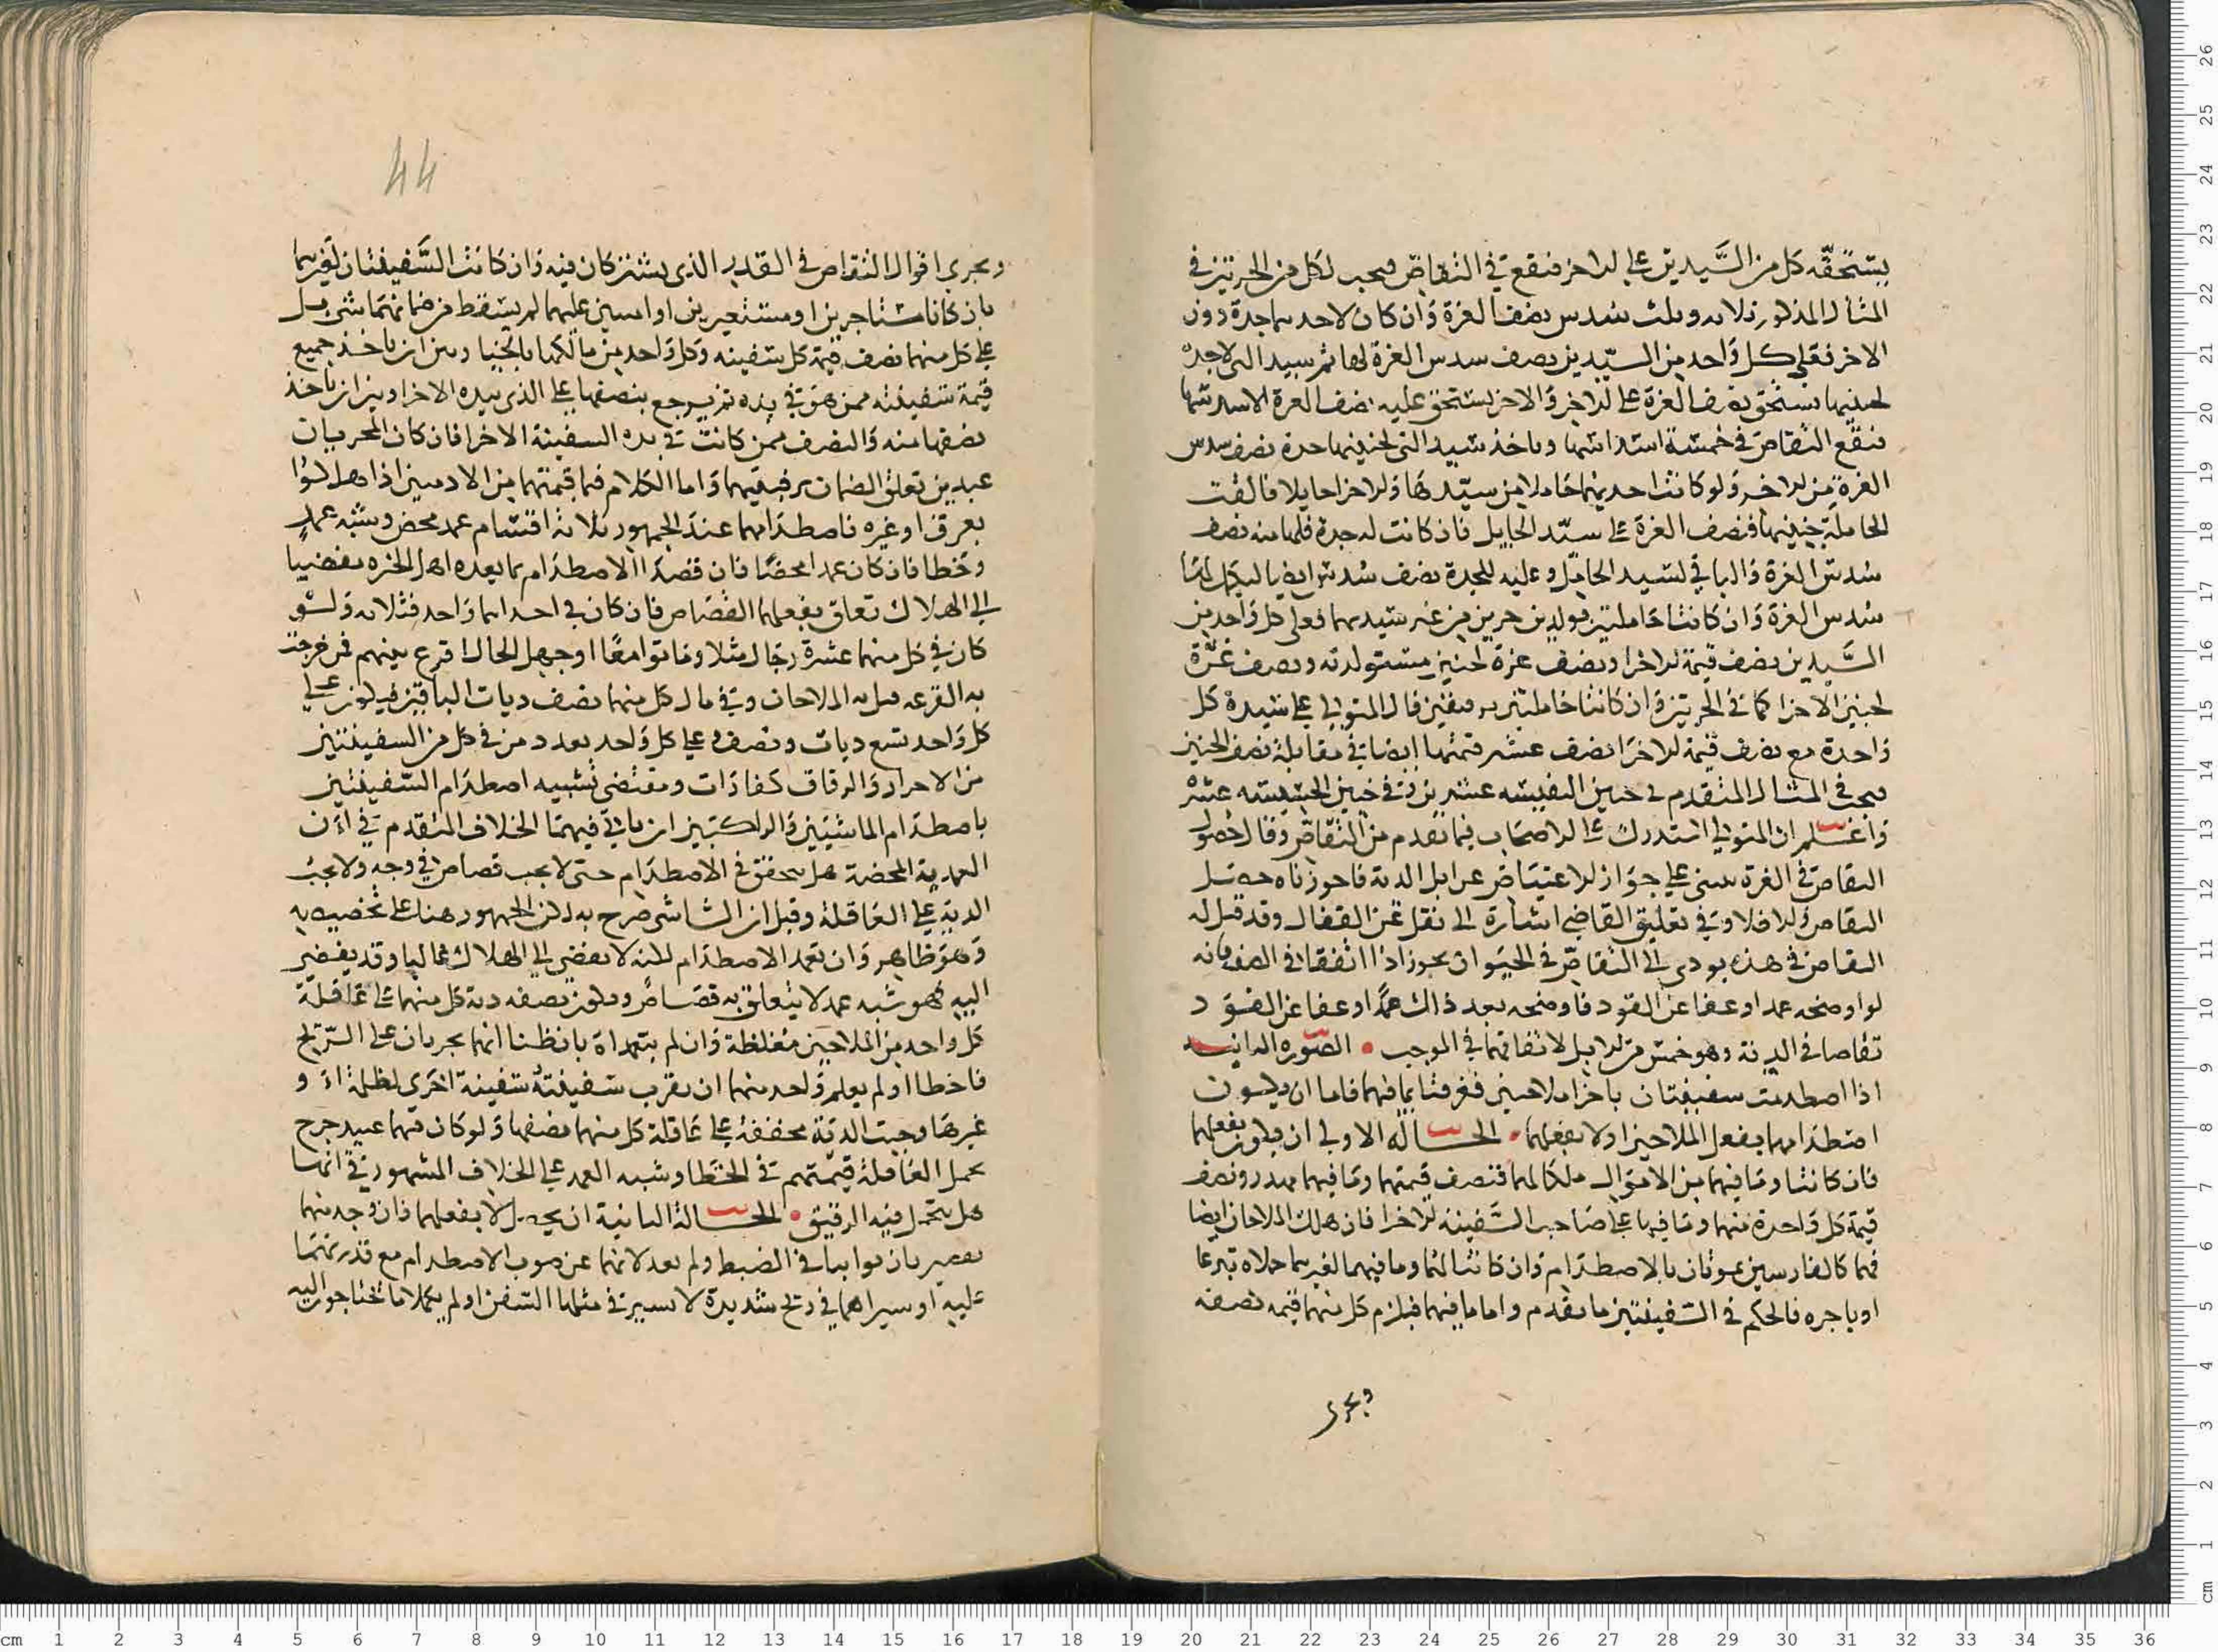 يستحقه كل من السيدين على الاخر فنقع في التقاص فيجب لكل من الحرتين في
المثال المذكور ثلاثه وثلث سدس نصف الغرة وان كان لاحديهما جدة دون
الاخر فعلى كل واحد من السيدين نصف سدس الغرة لها ثم سيد التي لاجدة
لجنينها يستحق نصف الغرة على الاخر والاخر يستحق عليه نصف الغرة الاسدسها
فيقع التقاص في خمسة اسداسها وياخذ سيد التي لجنينها جدة نصف سدس
الغرة من الاخر ولو كانت احديهما حاملا من سيدها والاخرا حايلا فالقت
الحاملة جنينها فنصف الغرة على سيد الحايل فان كانت له جدة فلها منه نصف
سدس الغرة والباقي لسيد الحامل وعليه للجدة نصف سدس ايضا ليكمل لها
سدس الغرة وان كانتا حاملتين بولدين حرين من غير سيديهما فعلى كل واحد من
السيدين نصف قيمة الاخرا ونصف غرة لجنين مستولدته ونصف غرة
لجنين الاخرا كما في الحرتين وان كانتا حاملتين برقيقين قال المتولي على سيدة كل
واحدة مع نصف قيمة الاخرا نصف عشر قيمتها ايضا في مقابلة نصف الجنين
فيجب في المثال المتقدم في جنين النفيسه عشرين وفي جنين الخسيسه عشرة
واعلم ان المتولي استدرك على الاصحاب فيما تقدم من التقاص وقال حصول
التقاص في الغرة يبنى على جواز الاعتياض عن ابل الدية فان جوزناه حصل
التقاص والا فلا وفي تعليق القاضي اشارة الى نقل عن القفال وقد قيل له
التقاص في هذه يودي الى التقاص في الحيوان يجوز اذا اتفقا في الصفه فانه
لو اوضحه عمدا وعفا عن القود فاوضحه بعد ذلك عمدا وعفا عن القود
تقاصا في الدية وهو خمس من الابل لاتفاقهما في الموجب • الصوره الثانيه
اذا اصطدمت سفينتان باجرا ملاحين فغرقتا بما فيهما فاما ان يكون
اصطدامهما بفعل الملاحين اولا بفعلهما • الحالة الاولى ان يكون بفعلهما
فان كانتا وما فيهما من الاموال ملكا لهما فنصف قيمتهما وما فيهما مهدر ونصف
قيمة كل واحدة منهما وما فيها على صاحب السفينة الاخرا فان هلك الملاحان ايضا
فهما كالفارسين يموتان بالاصطدام وان كانتا لهما وما فيهما لغيرهما حملاه تبرعا
او باجره فالحكم في السفينتين ما تقدم واما ما فيهما فيلزم كل منهما قيمه نصفه
ويجرى
44
ويجرى اقوال التقاص في القدر الذي يشتركان فيه وان كانت السفينتان لغيرهما
بان كانا مستاجرين او مستعيرين او امينين عليهما لم يسقط من ضمانهما شي بل
على كل منهما نصف قيمة كل سفينه وكل واحد من مالكهما بالخيار بين ان ياخذ جميع
قيمة سفينته ممن هو في يده ثم يرجع بنصفها على الذي بيده الاخرا وبين ان ياخذ
نصفها منه والنصف ممن كانت في يده السفينة الاخرا فان كان المجريان
عبدين تعلق الضمان برقبتيهما واما الكلام فيما قيمتهما من الادميين اذا هلكوا
بغرق او غيره فاصطدامهما عند الجمهور ثلاثة اقسام عمد محض وشبه عمد
وخطا فان كان عمدا محضا فان قصدا الاصطدام بما يعده اهل الخبره مفضيا
الى الهلاك تعلق بفعلهما القصاص فان كان في احداهما واحد فثلاثه ولو
كان في كل منهما عشرة رجال مثلا وماتوا معا او جهل الحال اقرع بينهم فمن خرجت
به القرعه قتل به الملاحان وفي مال كل منهما نصف ديات الباقين فيكون على
كل واحد تسع ديات ونصف وعلى كل واحد بعدد من في كل من السفينتين
من الاحرار والرقاق كفارات ومقتضى تشبيه اصطدام السفينتين
باصطدام الماشيين والراكبين ان ياتي فيهما الخلاف المتقدم في ان
العمدية المحضة هل يتحقق في الاصطدام حتى لا يجب قصاص في وجه ولا تجب
الدية على العاقلة وقيل ان الشاشي صرح به لكن الجمهور هنا على تخصيصه
وهو ظاهر وان تعمد الاصطدام لكنه لا يفضي الى الهلاك غالبا وقد يفضي
اليه فهو شبه عمد لا يتعلق به قصاص ويكون نصف دية كل منهما على عاقلة
كل واحد من الملاحين مغلظة وان لم يتعمداه بان ظنا انهما يجريان على الريح
فاخطاا ولم يعلم واحد منهما ان بقرب سفينته سفينة اخرى لظلمة او
غيرها وجبت الدية مخففة على عاقلة كل منهما نصفها ولو كان فيهما عبيد خرج
تحمل العاقلة قيمتهم في الخطا وشبه العمد على الخلاف المشهور في انها
هل تتحمل فيه الرقيق • الحالة الثانية ان يحصل لا بفعلهما فان وجد منهما
تقصير بان توانيا في الضبط ولم يعدلانهما عن صوب الاصطدام مع قدرتهما
عليه او سيراهما في ريح شديدة لا تسير في مثلها السفن او لم يكملا ما تحتاجون اليه